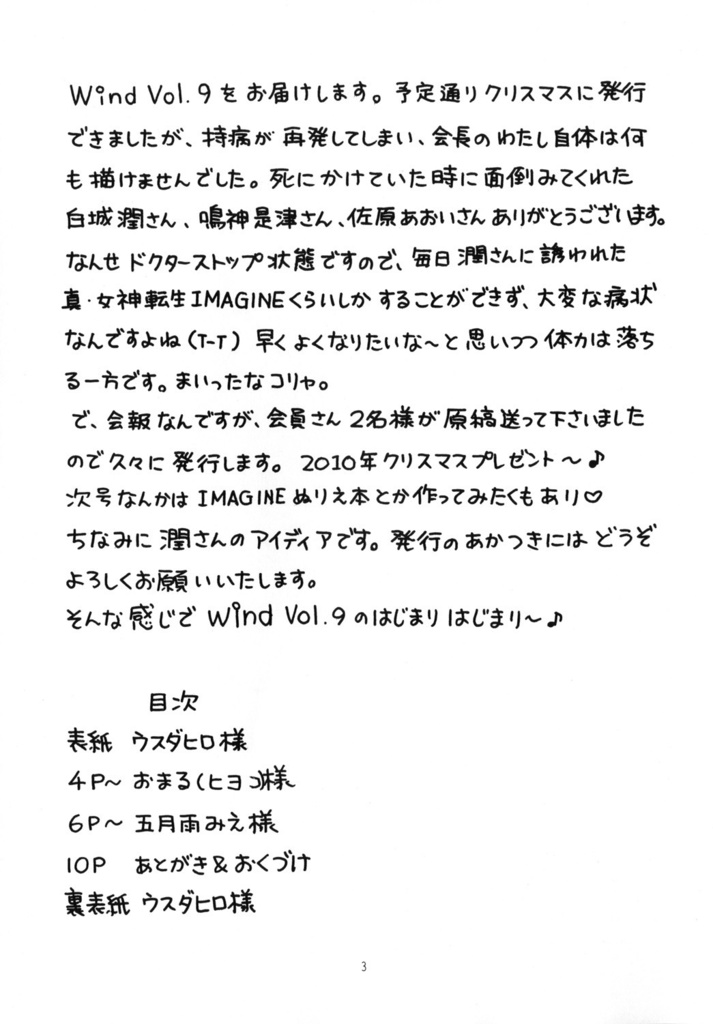 Wind Vol.9をお届けします。予定通りクリスマスに発行
できましたが、持病が再発してしまい、会長のわたし自体は何
も描けませんでした。死にかけていた時に面倒みてくれた
白城潤さん、鳴神是津さん、佐原あおいさんありがとうございます。
なんせドクターストップ状態ですので、毎日潤さんに誘われた
真・女神転生IMAGINEくらいしかすることができず、大変な病状
なんですよね(T-T) 早くよくなりたいな～と思いつつ体力は落ち
る一方です。まいったなコリャ。
で、会報なんですが、会員さん2名様が原稿送って下さいました
ので久々に発行します。2010年クリスマスプレゼント～♪
次号なんかはIMAGINEぬりえ本とか作ってみたくもあり♡
ちなみに潤さんのアイディアです。発行のあかつきにはどうぞ
よろしくお願いいたします。
そんな感じでWind Vol.9のはじまりはじまり～♪
目次
表紙 ウスダヒロ様
4P～ おまる(ヒヨコ)様
6P～ 五月雨みえ様
10P あとがき&おくづけ
裏表紙 ウスダヒロ様
3